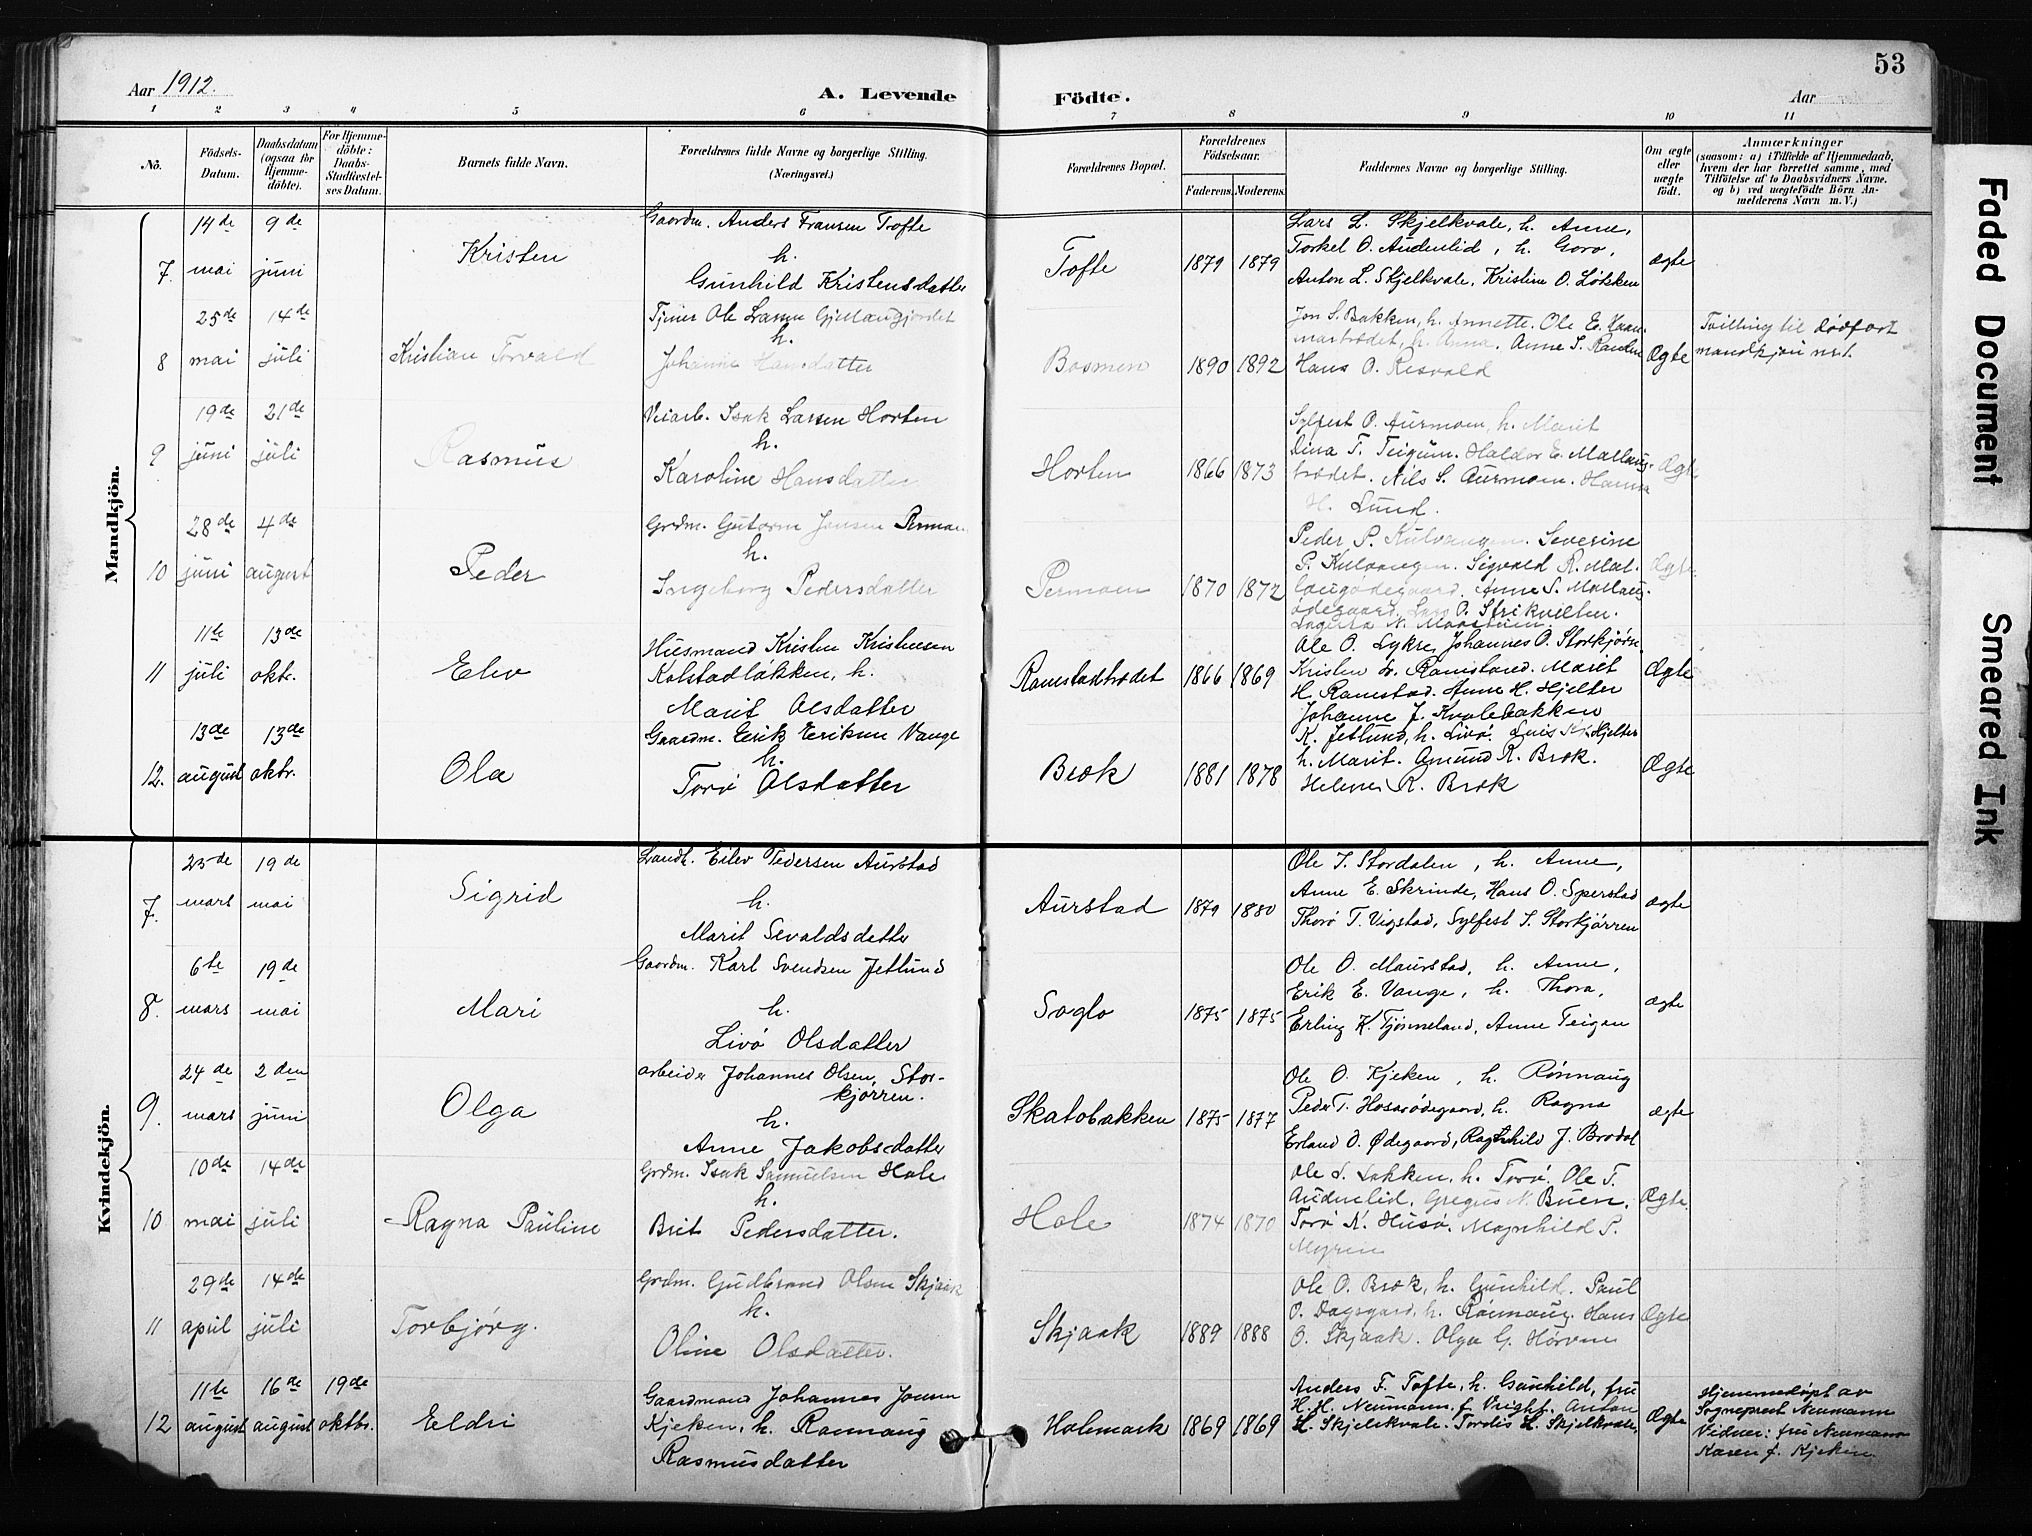 53
Aar 1912.
A. Levende Födte.
Aar
1 2 3 4 5 6 7 8 9 10 11
No.
Födsels-Datum.
Daabsdatum (ogsaa for Hjemme-döbte).
For Hjemme-döbte: Daabs-Stadfæstel-ses Datum.
Barnets fulde Navn.
Forældrenes fulde Navne og borgerlige Stilling.
(Næringsvei.)
Forældrenes Bopæl.
Forældrenes Födselsaar.
Faderens. Moderens.
Faddernes Navne og borgerlige Stilling.
Om ægte eller uægte födt.
Anmærkninger
(saasom: a) i Tilfælde af Hjemmedaab,
hvem der har forrettet samme, med
Tilföielse af to Daabsvidners Navne,
og b) ved uægtefödte Börn An-
melderens Navn m. V.)
Mandkjön.
14de 9de Gaardm. Anders Fransen Tofte Lars L. Skjelkvale, h. Anne,
Kristen h. Torkel O. Audenlid, h. Goro,
7. mai juni Tofte 1879 1879 ægte
Gunhild Kristensdatter Anton L. Skjelkvale, Kristine O. Løkken
25de 14de Tjener Ole Larsen Jon S. Bakken, h. Annette. Ole E.
Kristian Torvald h. h. Anna. Anne S. Tvilling til dødfødt
8 mai juli Johanne Hansdatter Bosmen 1890 1892 Hans O. Risvold Ægte mandkjøn nr 1.
19de 21de Veiarb. Isak Larsen Horten Sylfest O. Aurmoen, h. Marit
h. Dina T. Teigum. Haldor E.
9 juni juli Rasmus Karoline Hansdatter Horten 1866 1873 Nils S. Aurmoen. Hanna Ægte
H. Lund.
28de 4de Grdm. Gutorm Jonsen Permoen Peder P. Kulvangen. Severine
h. P. Kulvangen. Sigvald R. Mal-
10 juni august Peder Ingeborg Pedersdatter Permoen 1870 1872 laugødegaard. Anne S. Mallaug- Ægte
ødegaard. Lars O.
11te 13de Husmand Kristen Kristensen Ole O. Lykre, Johannes O. Storkjørn.
11 juli oktr. Elev Kolstadløkken, h. Ramstadtrædet 1866 1869 Kristen Ramstad. Marit Ægte
Marit Olsdatter H. Ramstad. Anne H. Hjelter
Johanne J. Kvalebakken
13de 13de Gaardm. Erik Eriksen Vange K. Jetlund, h. Livø. Hjelter
h. h. Marit. Amund R. Bræk.
12. august oktr. Ola Torø Olsdatter Bræk 1881 1878 Helene R. Bræk Ægte
Kvindekjön.
25de 19de Landh. Eilev Pedersen Aurstad Ole T. Stordalen, h. Anne,
Sigrid h. Anne E. Skrinde, Hans O. Sperstad
7. mars mai Aurstad 1879 1880 ægte
Marit Sevaldsdatter Thorø T. Vigstad, Sylfest S. Storkjörren
6te 19de Gaardm. Karl Svendsen Jetlund Ole O. Maurstad, h. Anne,
Erik E. Vange, h. Thora,
8. mars mai Mari h. Soglo 1875 1875 ægte
Livø Olsdatter Erling K. Tjønneland, Anne Teigen
24de 2den arbeider Johannes Olsen, Stor- Ole O. Kjeken, h. Rönnaug
kjörren.
9. mars juni Olga h. Skatobakken 1875 1877 Peder T. Hosarödegaard, h. Ragna ægte
Anne Jakobsdatter Erland O. Ødegaard, Ragnhild J. Brodal
10de 14de Grdm. Isak Samuelsen Hole Ole S. Løkken, h. Torø. Ole T.
h. Audenlid. Gregus N. Buen.
10 mai juli Ragna Pauline Brit Pedersdatter. Hole 1874 1870 Torø N. Husø. Magnhild P. Ægte
Myren
29de 14de Grdm. Gudbrand Olsen Skjaak Ole O. Bræk, h. Gunhild. Paul
h. O. Dagsgard, h. Rönnaug. Hans
11 april juli Torbjørg. Oline Olsdatter. Skjaak 1889 1888 O. Skjaak. Olga G. Hørven Ægte
11te 16de 19de Gaardmand Johannes Jonsen Anders F. Tofte, h. Gunhild, fru Hjemmedøpt av
12 august august oktbr. Eldri Kjeken, h. Rønnaug Holemark 1869 1869 H. H. Neumann f. Vright, Anton Ægte Sogneprest Neumann
Rasmusdatter L. Skjelkvale. Tordis L. Skjelkvale, Vidner: fru Neumann
Karen J. Kjeken.
Faded Document
Smeared Ink